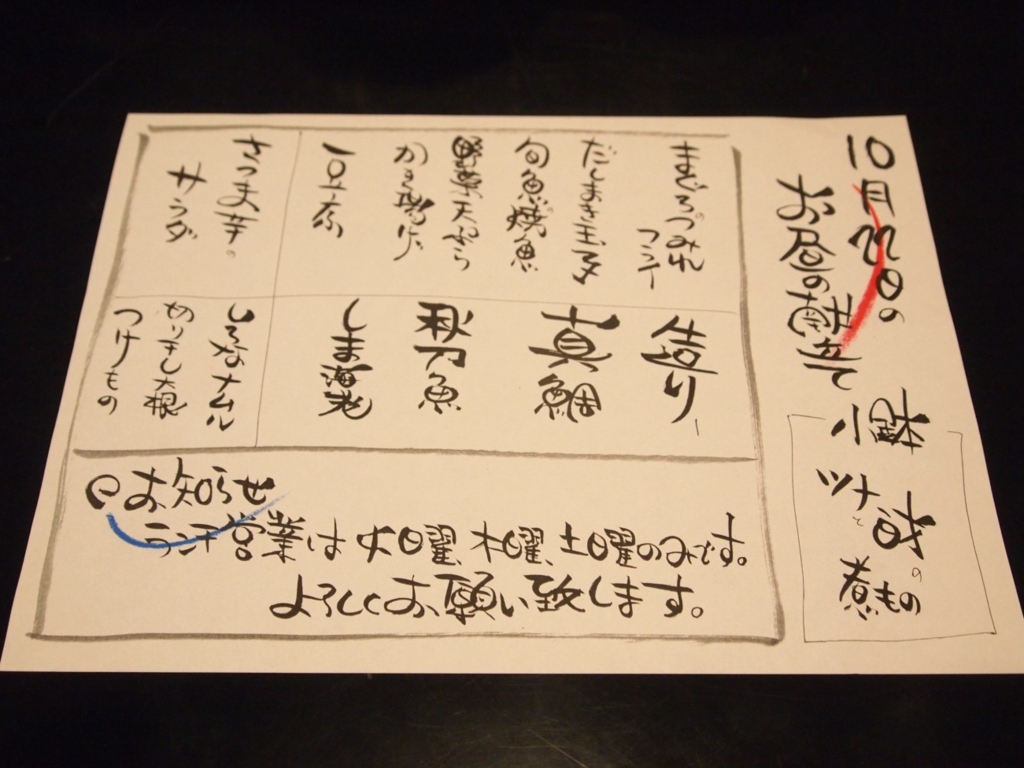 10月22日の
お昼の献立て
小鉢
ツナと
時の
煮もの
まぐろつみれ
フライ
だしまき玉子
旬魚焼魚
野菜天ぷら
かき揚げ
豆腐
さつま芋の
サラダ
造り
真鯛
秋刀魚
しま海老
しろなナムル
切り干し大根
つけもの
お知らせ
ランチ営業は火曜、木曜、土曜のみです。
よろしくお願い致します。